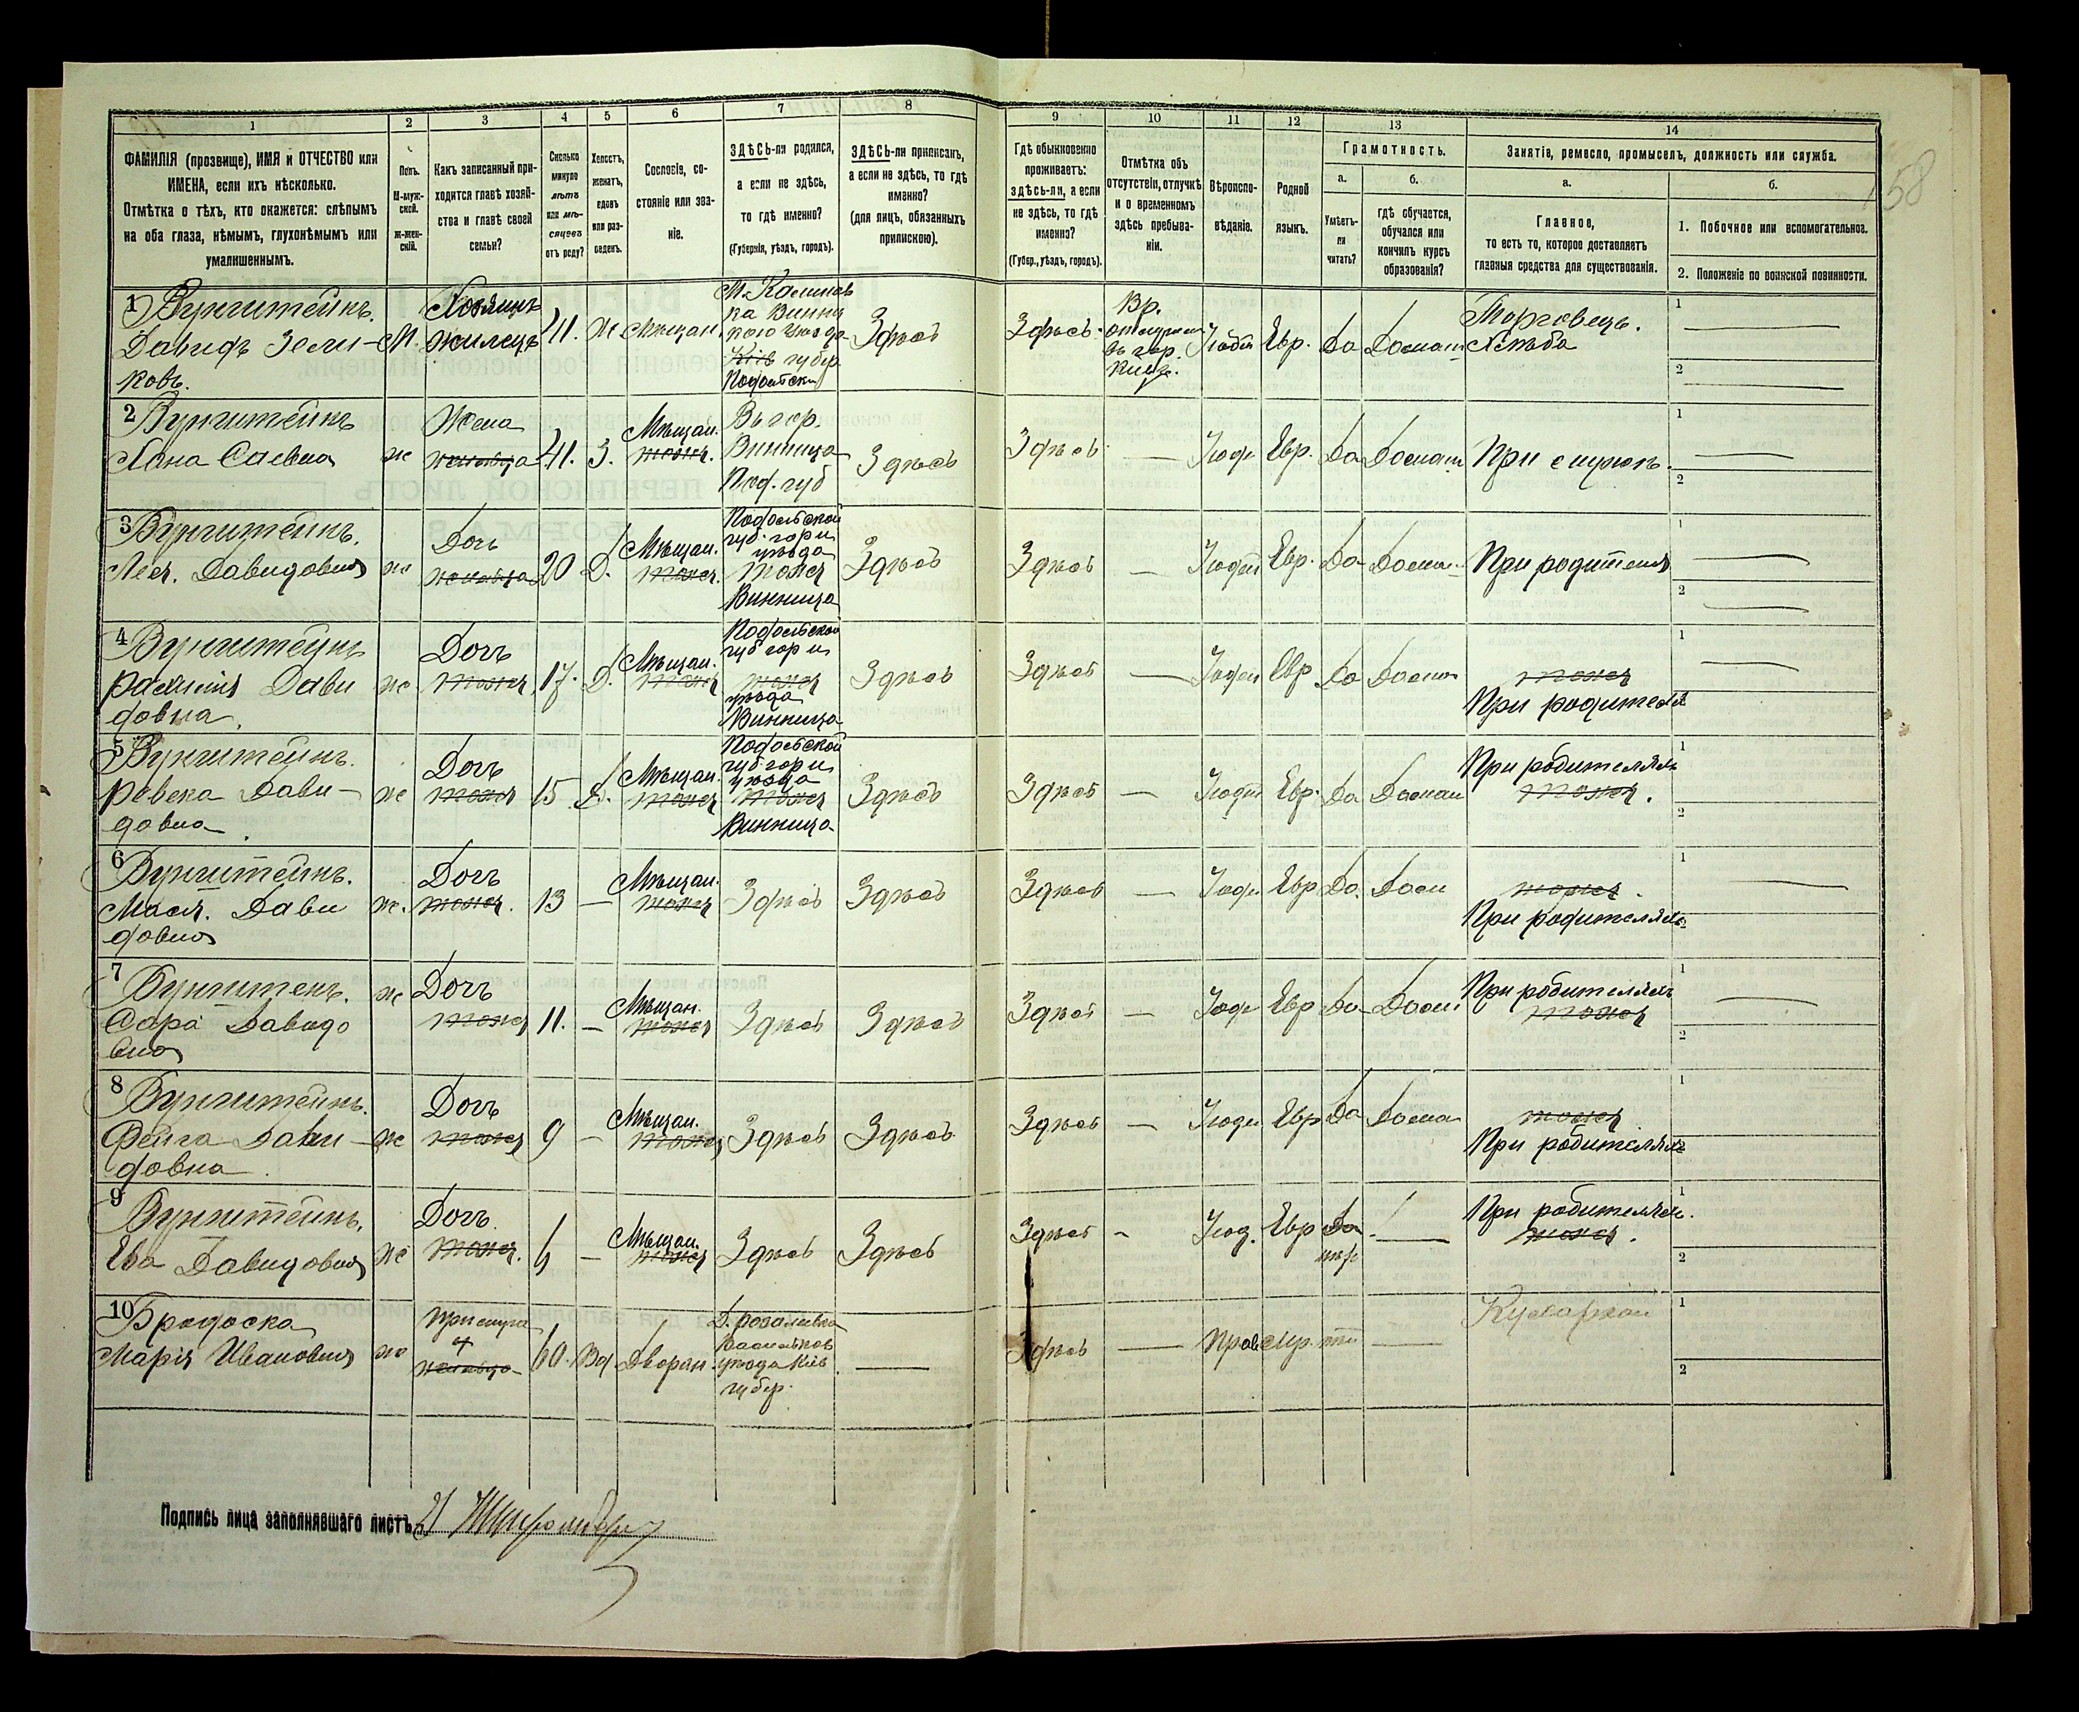 158
1 2 3 4 5 6 7 8 9 10 11 12 13 14
ФАМИЛІЯ (прозвище), ИМЯ и ОТЧЕСТВО или
ИМЕНА, если ихъ нѣсколько.
Отмѣтка о тѣхъ, кто окажется: слѣпымъ
на оба глаза, нѣмымъ, глухонѣмымъ или
умалишеннымъ.
Полъ.
М-муж-
ской.
ж-жен-
скій.
Какъ записанный при-
ходится главѣ хозяй-
ства и главѣ своей
семьи?
Сколько
минуло
лѣтъ
или мѣ-
сяцевъ
отъ роду?
Холостъ,
женатъ,
вдовъ
или раз-
веденъ.
Сословіе, со-
стояніе или зва-
ніе.
ЗДѢСЬ-ли родился,
а если не здѣсь,
то гдѣ именно?
(Губернія, уѣздъ, городъ).
ЗДѢСЬ-ли приписанъ,
а если не здѣсь, то гдѣ
именно?
(для лицъ, обязанныхъ
припискою).
Гдѣ обыкновенно
проживаетъ:
здѣсь-ли, а если
не здѣсь, то гдѣ
именно?
(Губер., уѣздъ, городъ).
Отмѣтка объ
отсутствіи, отлучкѣ
и о временномъ
здѣсь пребыва-
ніи.
Вѣроиспо-
вѣданіе.
Родной
языкъ.
Грамотность.
а.
Умѣетъ-
ли
читать?
б.
гдѣ обучается,
обучался или
кончилъ курсъ
образованія?
Занятіе, ремесло, промыселъ, должность или служба.
а.
Главное,
то есть то, которое доставляетъ
главныя средства для существованія.
б.
1. Побочное или вспомогательное.
2. Положеніе по воинской повинности.
1 Вунштейнъ.
Давидъ Зели-
ковъ.
М. Хозяинъ
жилецъ 41. Ж Мѣщан.
М. Калинов
ка Винни
кого уѣзда
Кіев губер
Подольски
Здѣсь Здѣсь
Вр.
въ гор.
Іудей Евр. Да Домаш
Торговецъ.
Хлѣба
1
2
2 Вунштейнъ
Хана Саевна ж Жена
41. З. Мѣщан.
тоже.
Въ гор.
Винница
Под. губ
Здѣсь Здѣсь — Іуде Евр. Да Домаш При мужѣ.
1
2
3 Вунштейнъ.
Лея. Давидовна ж Дочь
20 Д. Мѣщан.
тоже.
Подольской
губ. гор и
уѣзда
тоже
Винница
Здѣсь Здѣсь — Іудей Евр. Да Домаш При родителя
1
2
4 Вунштейнъ
Давидовна ж Дочь
тоже 17. Д. Мѣщан.
тоже
Подольской
губ гор и
тоже
уѣзда
Винница
Здѣсь Здѣсь — Іудей Евр Да Домаш
тоже
При родителя
1
5 Вунштейнъ.
Ревека Дави-
довна ж Дочь
тоже 15 Д. Мѣщан.
тоже
Подольской
губ гор и
уѣзда
тоже
Винница
Здѣсь Здѣсь — Іудей Евр. Да Домаш
При родителяхъ
тоже.
1
2
6 Вунштейнъ.
Мася. Дави
довна ж. Дочь
тоже. 13 — Мѣщан.
тоже
Здѣсь Здѣсь Здѣсь — Іуде Евр Да Дом
тоже.
При родителяхъ
1
7 Вунштенъ.
Сара Давидо
вна ж Дочь
тоже 11. — Мѣщан.
тоже
Здѣсь Здѣсь Здѣсь — Іуде Евр Да Дом
При родителяхъ
тоже
1
2
8 Вунштейнъ.
Фейга Дави-
довна ж Дочь
тоже 9 — Мѣщан.
тоже
Здѣсь Здѣсь Здѣсь — Іуде Евр Да Дома
тоже
При родителяхъ
1
9 Вунштейнъ.
Ева Давидовна ж Дочь.
тоже. 6 — Мѣщан.
тоже
Здѣсь Здѣсь Здѣсь — Іуд. Евр Да —
При родителяхъ.
тоже.
1
2
10
Марія Ивановна ж
60. Вд Дворян
уѣзда Кіев
губер.
— Здѣсь — Прав —
Кухарка
1
2
Подпись лица заполнявшаго листъ